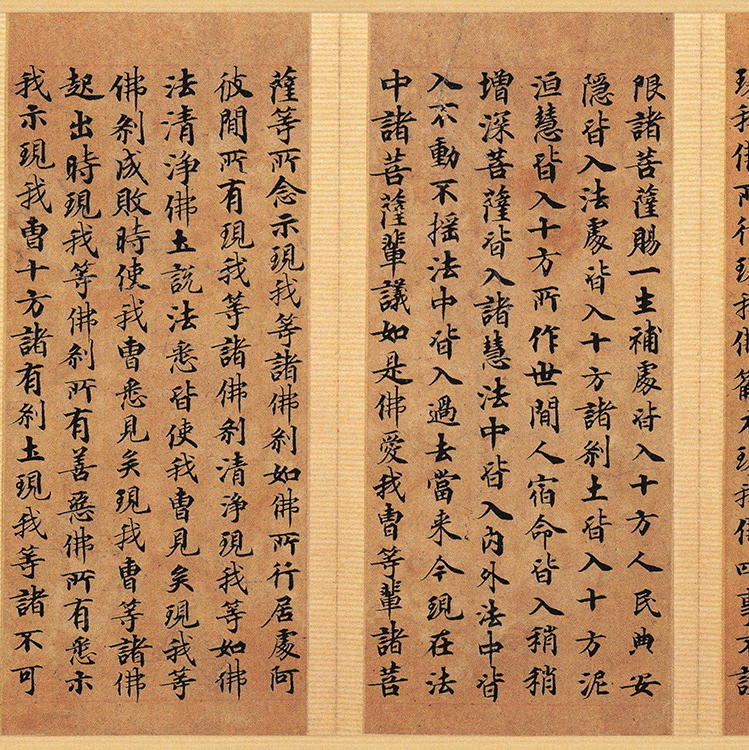 限諸菩薩賜一生補處皆入十方人民典安
隱皆入法處皆入十方諸剎土皆入十方泥
洹慧皆入十方所作世間人宿命皆入稍稍
增深菩薩皆入諸慧法中皆入內外法中皆
入不動不摇法中皆入過去當来今現在法
中諸菩薩輩議如是佛愛我曹等輩諸菩
薩等所念示現我等諸佛剎如佛所行居處阿
彼間所有現我等諸佛剎清淨現我等如佛
法清淨佛土說法悉皆使我曹見矣現我等
佛剎成敗時使我曹悉見矣現我曹等諸佛
起出時現我等佛剎所有善惡佛所有悉示
我示現我曹十方諸有剎土現我等諸不可